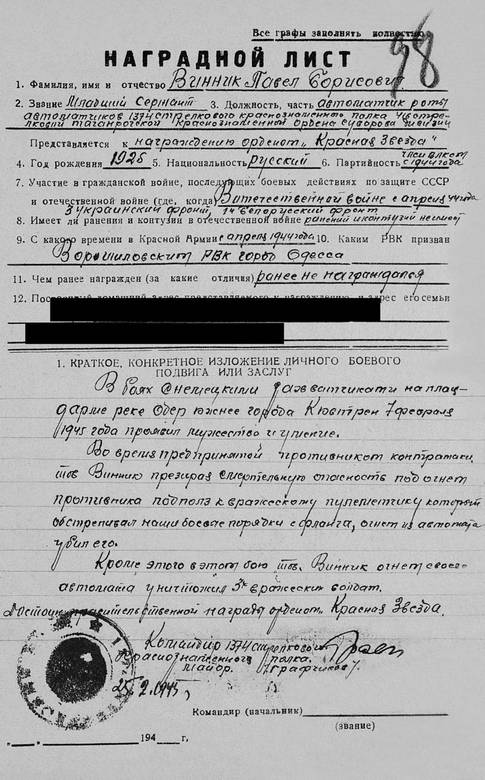 Все графы заполнять полностью
98
НАГРАДНОЙ ЛИСТ
1. Фамилия, имя и отчество Винник Павел Борисович
2. Звание Младший Сержант 3. Должность, часть автоматчик роты
автоматчиков 1374 стрелкового краснознаменного полка
таганрогской Краснознаменной ордена Суворова дивизии
Представляется к награждению орденом „Красная Звезда"
4. Год рождения 1926 5. Национальность русский 6. Партийность член ВЛКСМ
с 1944 года
7. Участие в гражданской войне, последующих боевых действиях по защите СССР
и отечественной войне (где, когда) В отечественной войне с апреля 44 года
3 Украинский фронт, 1й Белорусский фронт
8. Имеет ли ранения и контузии в отечественной войне ранений и контузий не имеет
9. С какого времени в Красной Армии с апреля 1944 года 10. Каким РВК призван
Ворошиловским РВК город Одесса
11. Чем ранее награжден (за какие отличия) ранее не награждался
12. Постоянный домашний адрес представляемого к награждению и адрес его семьи
1. КРАТКОЕ, КОНКРЕТНОЕ ИЗЛОЖЕНИЕ ЛИЧНОГО БОЕВОГО
ПОДВИГА ИЛИ ЗАСЛУГ
В боях с немецкими захватчиками на плац-
дарме реке Одер южнее города Кюстрен 7 февраля
1945 года проявил мужество и умение.
Во время предпринятой противником контратаки
тов Винник презирая смертельную опасность под огнем
противника подполз к вражескому пулеметчику который
обстреливал наши боевые порядки с фланга, огнем из автомата
убил его.
Кроме этого в этом бою тов. Винник огнем своего
автомата уничтожил 3х вражеских солдат.
Достоин правительственной награды орденом Красная Звезда.
Командир 1374 стрелкового
Краснознаменного полка
Майор /Графчиков/.
25.2.1945г
Командир (начальник)
(звание)
194 г.